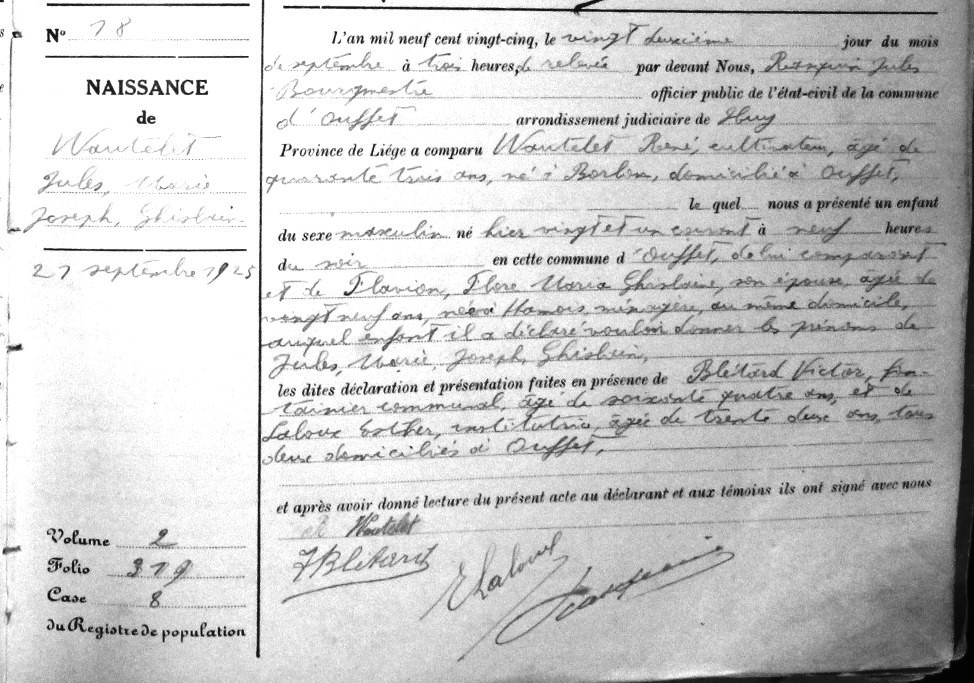 N° 18
NAISSANCE
de
Wautelet
Jules, Marie
Joseph, Ghislain
21 septembre 1925
Volume 2
Folio 319
Case 8
du Registre de population
L'an mil neuf cent vingt-cinq, le vingt deuxième jour du mois
de septembre à trois heures, de relevée par devant Nous, Jules
Bourgmestre officier public de l'état-civil de la commune
d'Ouffet arrondissement judiciaire de Huy
Province de Liége a comparu Wautelet René, cultivateur, âgé de
quarante trois ans, né à Borlon, domicilié à Ouffet,
le quel nous a présenté un enfant
du sexe masculin né hier vingt et un courant à neuf heures
du soir en cette commune d'Ouffet, de lui comparant
et de Flavion, Flore Maria Ghislaine, son épouse, âgée de
vingt neuf ans, née à Hamois, ménagère, au même domicile,
auquel enfant il a déclaré vouloir donner les prénoms de
Jules, Marie, Joseph, Ghislain,
les dites déclaration et présentation faites en présence de Blétard Victor, fon-
tainier communal, âgé de soixante quatre ans, et de
Laloux Esther, institutrice, âgée de trente deux ans, tous
deux domiciliés à Ouffet,
et après avoir donné lecture du présent acte au déclarant et aux témoins ils ont signé avec nous
R Wautelet
VBlétard
E Laloux